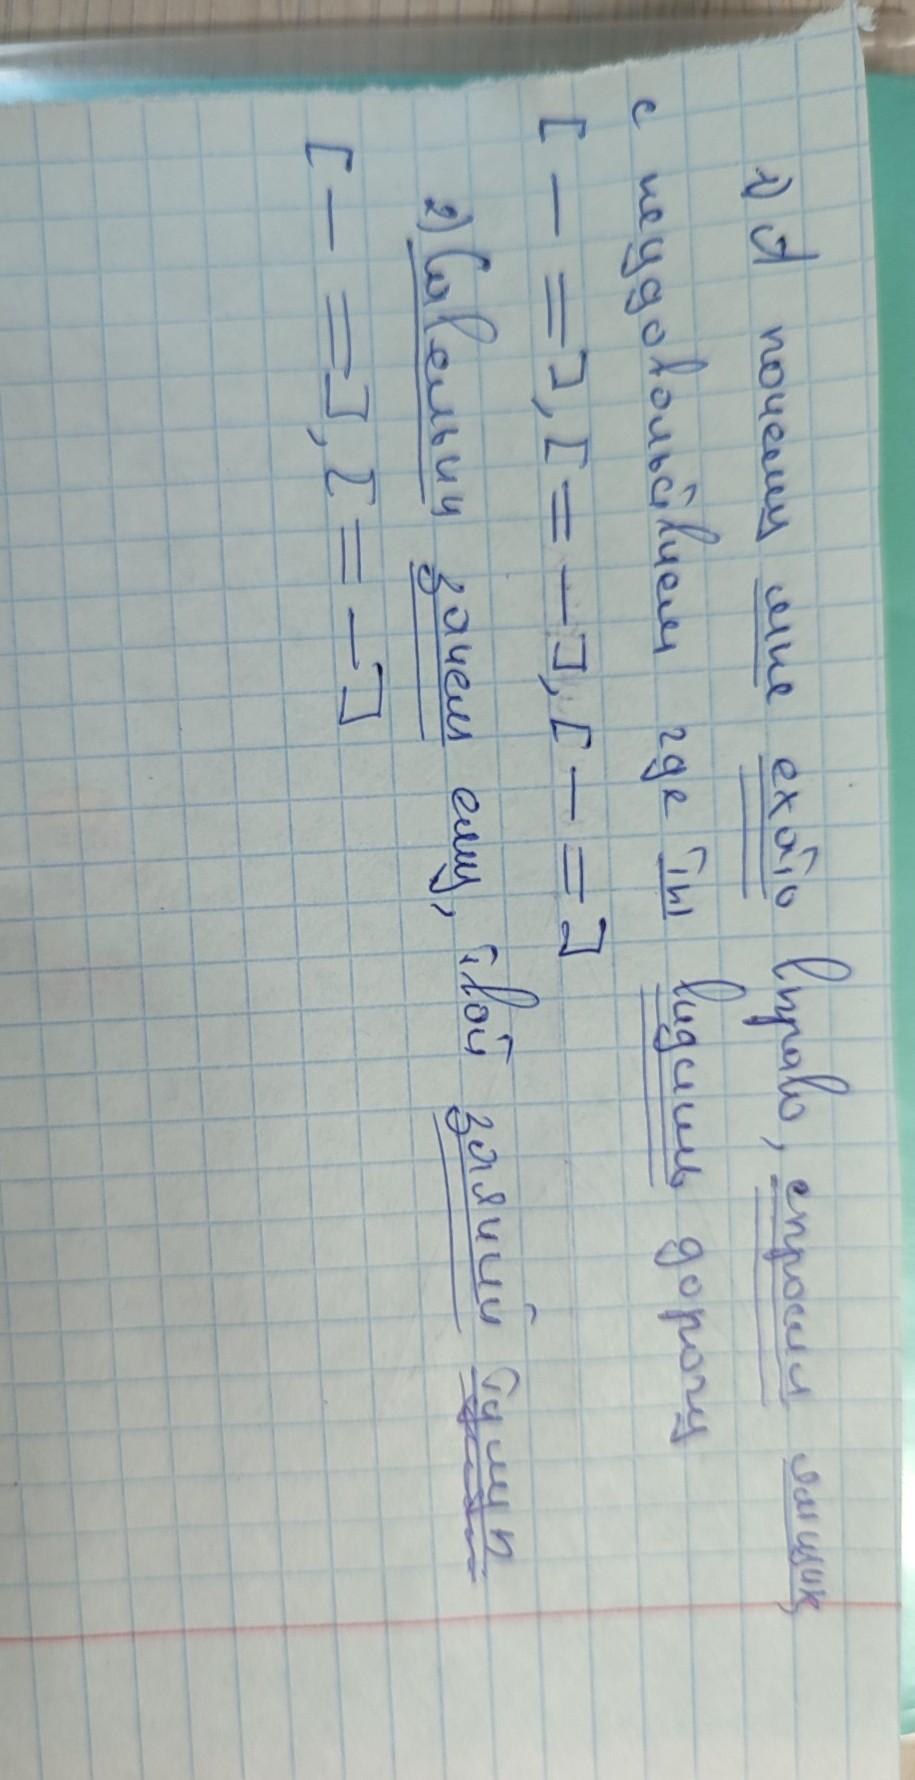 1) А почему мне ехать вправо, спросил ямщик,
с неудовольствием где ты видишь дорогу
[ — = ], [ = — ], [ — = ]
2) Савельич зачем ему, твой заячий тулуп
[ — = ], [ = — ]